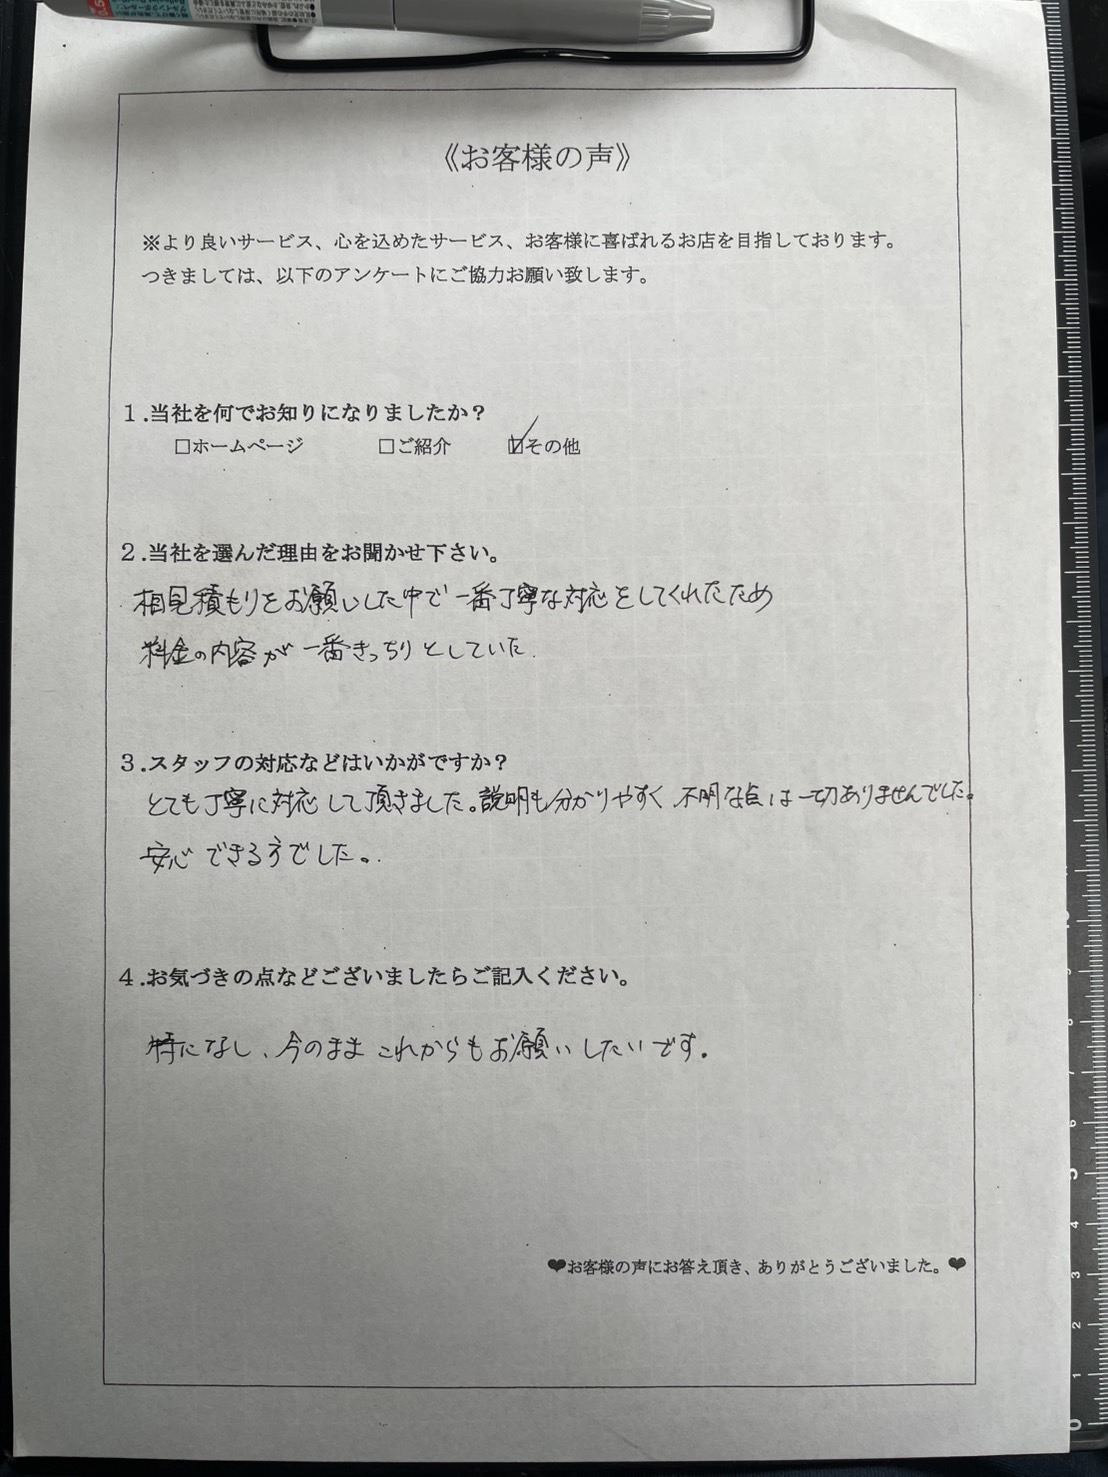 《お客様の声》
※より良いサービス、心を込めたサービス、お客様に喜ばれるお店を目指しております。
つきましては、以下のアンケートにご協力お願い致します。
1.当社を何でお知りになりましたか？
□ホームページ □ご紹介 ☑その他
2.当社を選んだ理由をお聞かせ下さい。
相見積もりをお願いした中で一番丁寧な対応をしてくれたため
料金の内容が一番きっちりとしていた.
3.スタッフの対応などはいかがですか？
とても丁寧に対応して頂きました。説明も分かりやすく不明な点は一切ありませんでした。
安心できる方でした。
4.お気づきの点などございましたらご記入ください。
特になし、今のままこれからもお願いしたいです。
❤お客様の声にお答え頂き、ありがとうございました。❤
0
1
2
3
4
5
6
7
8
9